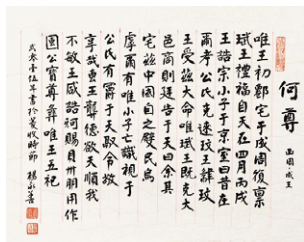 何尊
西周·成王
唯王初鄩宅于成周復稟
珷王禮福自天在四月丙戌
王誥宗小子于京室曰昔在
爾考公氏克逨玟王肆玟
王受兹大命唯珷王既克大
邑商則廷告于天曰余其
宅兹中國自之辟民烏
虖爾有唯小子亡識視于
公氏有爵于天徹令敬
享哉叀王龏德欲天順我
不敏王咸誥何賜貝卅朋用作
公寶尊彝唯王五祀
壹伍年書於收時節 楊永善